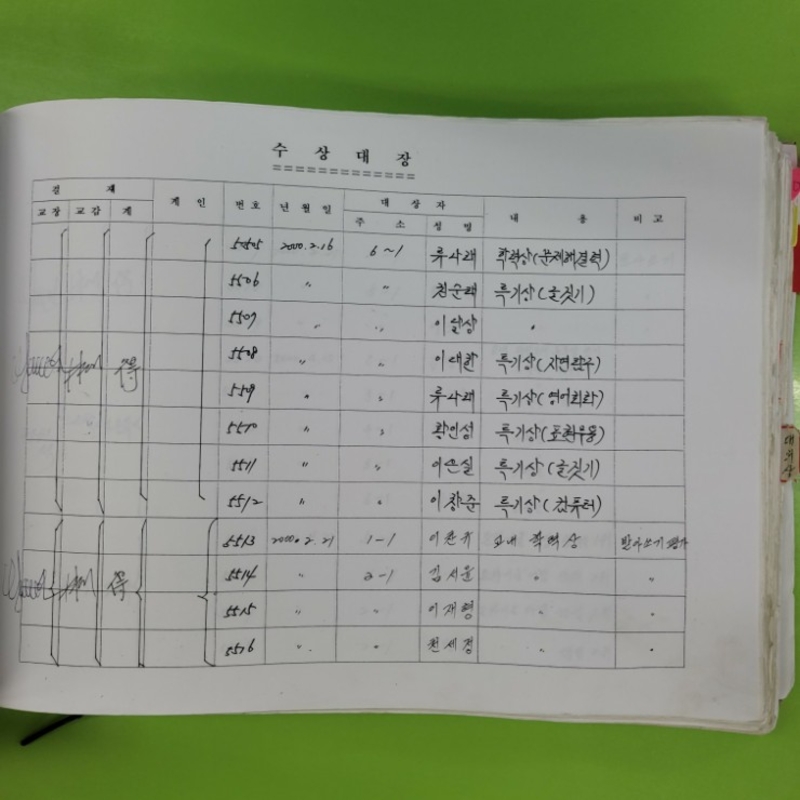 수 상 대 장
결 재 계 인 번호 년 월 일 대 상 자 내 용 비 고
교장 교감 계 주 소 성 명
5505 2000.2.16 6~1 류사래 학력상(문제해결력)
5506 〃 〃 천순택 특기상(글짓기)
5507 〃 〃 이실상 〃
5508 〃 〃 이대환 특기상(자연탐구)
5509 〃 〃 류사래 특기상(영어회화)
5510 〃 〃 황인성 특기상
5511 〃 〃 이은실 특기상(글짓기)
5512 〃 〃 이창준 특기상(컴퓨터)
5513 2000.2.21 1-1 교내 학력상 받아쓰기평가
5514 〃 2-1 김서운 〃 〃
5515 〃 〃 이재령 〃 〃
5516 〃 〃 천세정 〃 〃
得
得